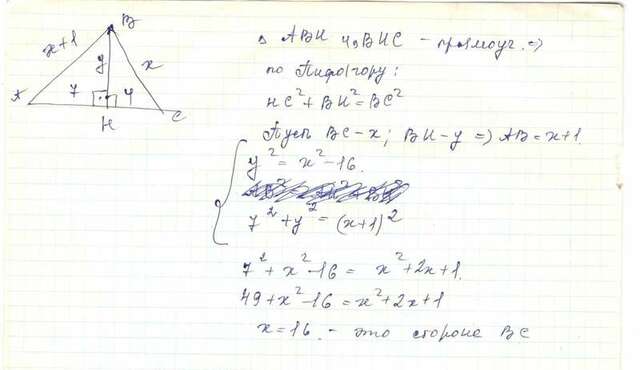 B
x+1
y
x
A
7
4
H
C
Δ ABH и ΔBHC - прямоуг. =>
по Пифагору:
HC²+BH²=BC²
Пусть BC-x; BH-y => AB=x+1.
y²=x²-16.
7²+y²=(x+1)²
7²+x²-16=x²+2x+1.
49+x²-16=x²+2x+1
x=16. - это сторона BC